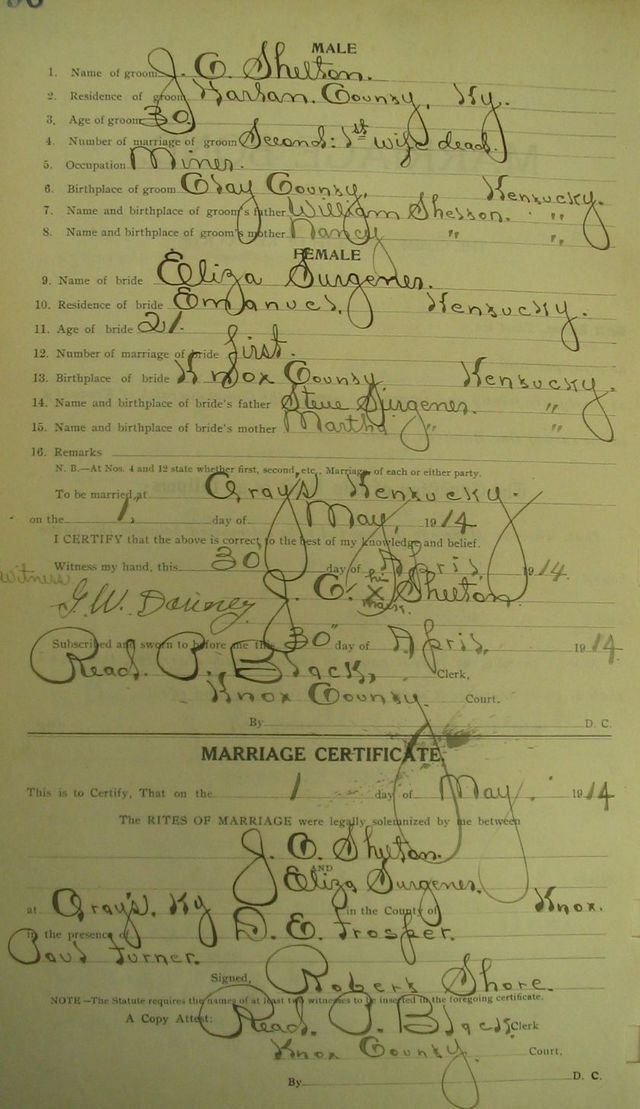 MALE
1. Name of groom J. C. Shelton.
2. Residence of groom Harlan. County, Ky.
3. Age of groom 30
4. Number of marriage of groom Second: 1st wife dead.
5. Occupation Miner.
6. Birthplace of groom Clay County, Kentucky.
7. Name and birthplace of groom's father William Shelton. " "
8. Name and birthplace of groom's mother Nancy " " "
FEMALE
9. Name of bride Eliza Surgener.
10. Residence of bride Emanuel, Kentucky.
11. Age of bride 21.
12. Number of marriage of bride first.
13. Birthplace of bride Knox County, Kentucky.
14. Name and birthplace of bride's father Steve Surgener. "
15. Name and birthplace of bride's mother Martha " "
16. Remarks
N. B.—At Nos. 4 and 12 state whether first, second, etc., Marriage of each or either party.
To be married at Grays Kentucky.
on the 1, day of May, 1914
I CERTIFY that the above is correct to the best of my knowledge and belief.
Witness my hand, this 30 day of April, 1914.
Witness
G. W. Danney J. C. his x mark. Shelton
Subscribed and sworn to before me this 30" day of April, 1914.
Read. P. Black, Clerk,
Knox County. Court.
By D. C.
MARRIAGE CERTIFICATE.
This is to Certify, That on the 1 day of May. 1914
The RITES OF MARRIAGE were legally solemnized by me between
J. C. Shelton.
AND
Eliza Surgener.
at Gray's, Ky in the County of Knox.
in the presence of D. E. Trosper.
Paul Turner.
Signed, Robert Shore.
NOTE—The Statute requires the names of at least two witnesses to be inserted in the foregoing certificate.
A Copy Attest: Read. P. Black. Clerk
Knox County. Court,
By D. C.